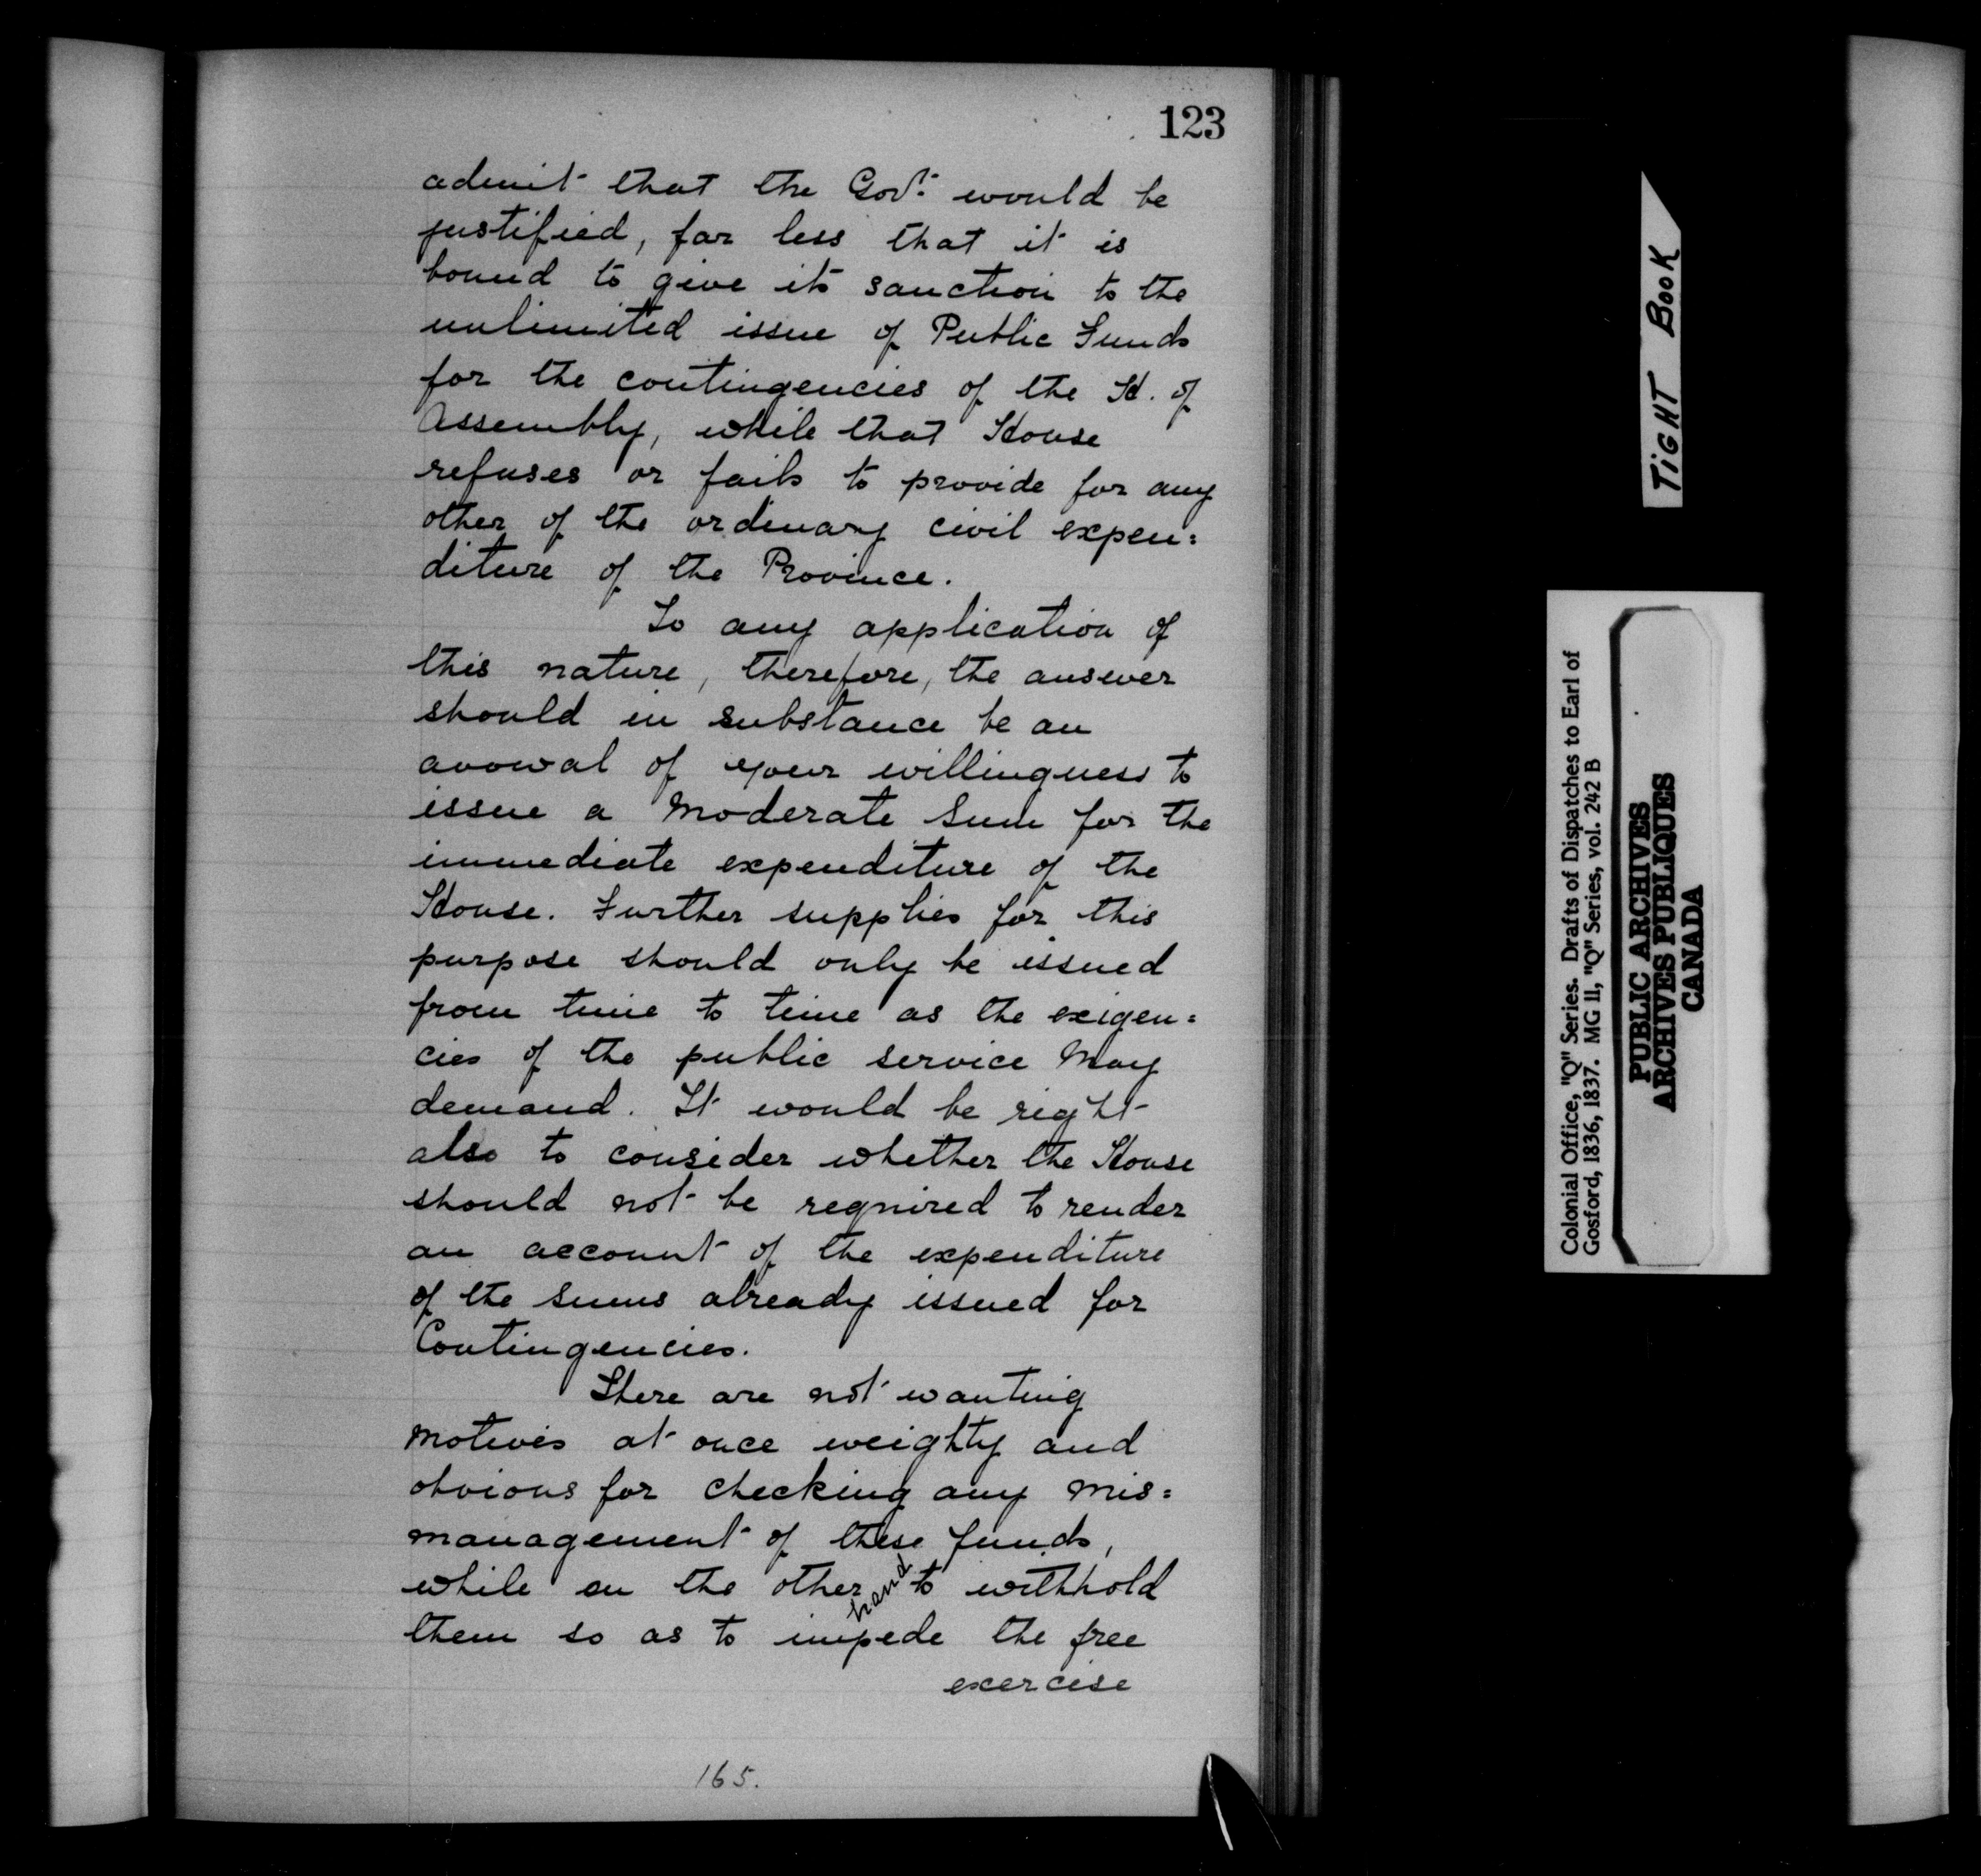 123
admit that the Govt. would be
justified, far less that it is
bound to give its sanction to the
unlimited issue of Public Funds
for the contingencies of the H. of
Assembly, while that House
refuses or fails to provide for any
other of the ordinary civil expen=
diture of the Province.
To any application of
this nature, therefore, the answer
should in substance be an
avowal of your willingness to
issue a moderate sum for the
immediate expenditure of the
House. Further supplies for this
purpose should only be issued
from time to time as the exigen=
cies of the public service may
demand. It would be right
also to consider whether the House
should not be required to render
an account of the expenditure
of the sums already issued for
Contingencies.
There are not wanting
motives at once weighty and
obvious for checking any mis=
management of these funds,
while on the other hand to withhold
them so as to impede the free
exercise
165.
TIGHT BOOK
Colonial Office, "Q" Series. Drafts of Dispatches to Earl of
Gosford, 1836, 1837. MG 11, "Q" Series, vol. 242 B
PUBLIC ARCHIVES
ARCHIVES PUBLIQUES
CANADA